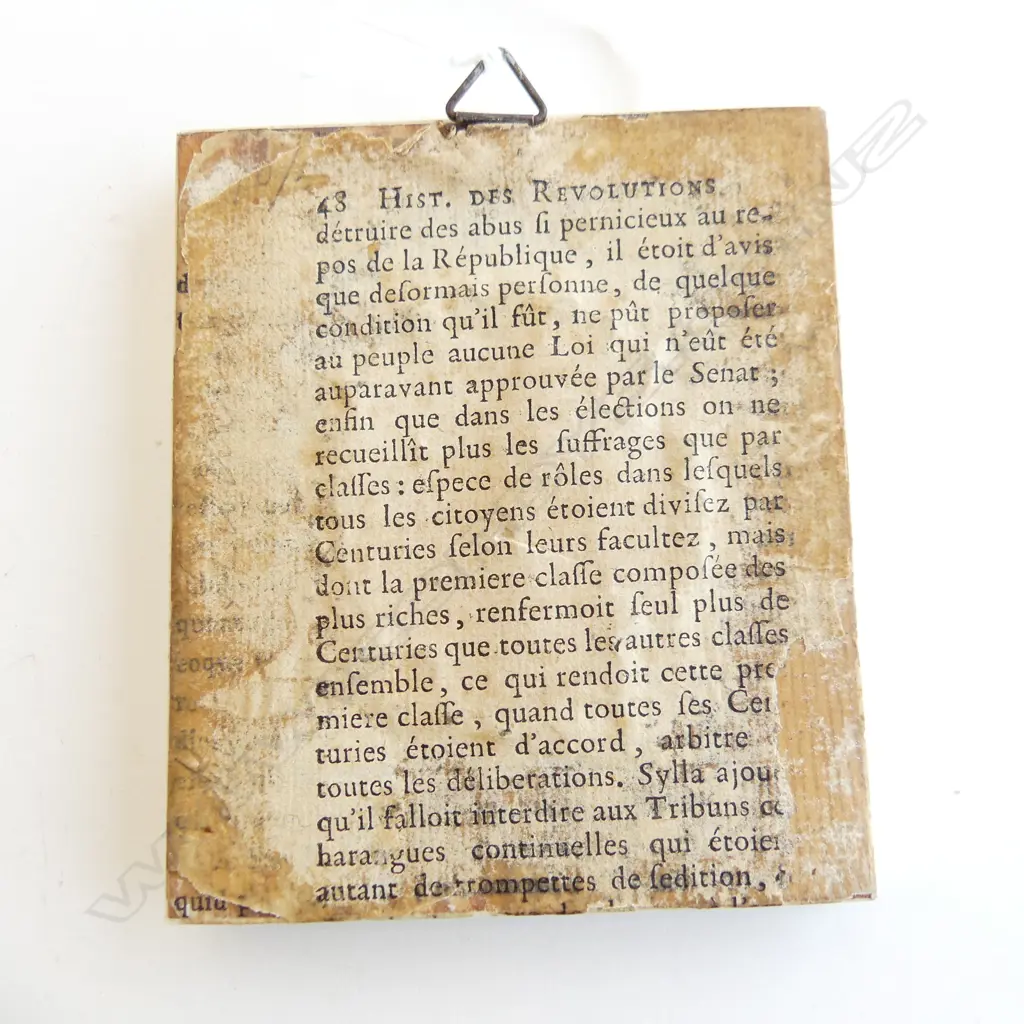 48 HIST. DES REVOLUTIONS
détruire des abus ſi pernicieux au re-
pos de la République, il étoit d'avis
que deſormais perſonne, de quelque
condition qu'il fût, ne pût propoſer
au peuple aucune Loi qui n'eût été
auparavant approuvée par le Senat;
enfin que dans les élections on ne
recueillît plus les ſuffrages que par
claſſes: eſpece de rôles dans leſquels
tous les citoyens étoient diviſez par
Centuries ſelon leurs facultez, mais
dont la premiere claſſe compoſée des
plus riches, renfermoit ſeul plus de
Centuries que toutes les autres claſſes
enſemble, ce qui rendoit cette pre
miere claſſe, quand toutes ſes Cen
turies étoient d'accord, arbitre
toutes les déliberations. Sylla ajou
qu'il falloit interdire aux Tribuns ce
harangues continuelles qui étoien
autant de trompettes de ſedition,